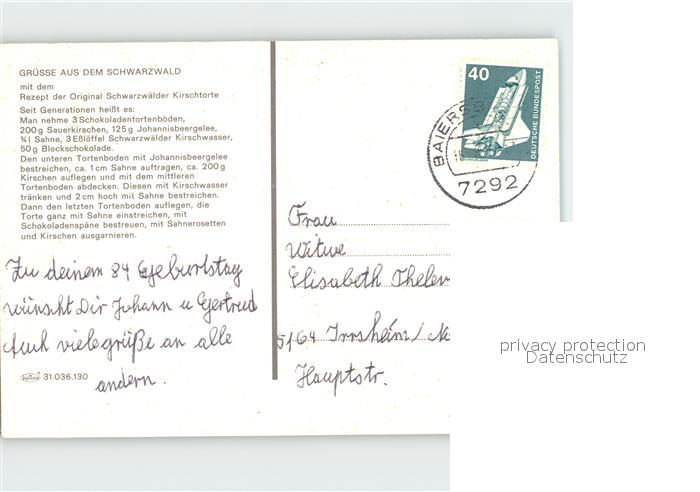 GRÜSSE AUS DEM SCHWARZWALD
mit dem
Rezept der Original Schwarzwälder Kirschtorte
Seit Generationen heißt es:
Man nehme 3 Schokoladentortenböden,
200 g Sauerkirschen, 125 g Johannisbeergelee,
¾ l Sahne, 3 Eßlöffel Schwarzwälder Kirschwasser,
50 g Blockschokolade.
Den unteren Tortenboden mit Johannisbeergelee
bestreichen, ca. 1 cm Sahne auftragen, ca. 200 g
Kirschen auflegen und mit dem mittleren
Tortenboden abdecken. Diesen mit Kirschwasser
tränken und 2 cm hoch mit Sahne bestreichen.
Dann den letzten Tortenboden auflegen, die
Torte ganz mit Sahne einstreichen, mit
Schokoladenspäne bestreuen, mit Sahnerosetten
und Kirschen ausgarnieren.
Zu deinem 84 Geburtstag
wünscht Dir Johann u Gertrud
Auch vielegrüße an alle
andern.
31.036.130
40
DEUTSCHE BUNDESPOST
BAIERS
7292
Frau
Witwe
Elisabeth Thelen
5164 Irrsheim/
Hauptstr.
privacy protection
Datenschutz